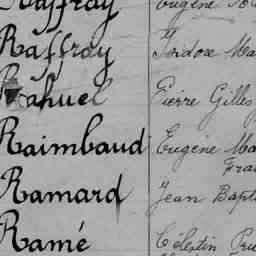 Raffray Eugène
Raffray Isidore Ma
Rahuel Pierre Gilles
Raimbaud Eugène Ma
Fra
Ramard Jean Bapt
Ramé Célestin Pru